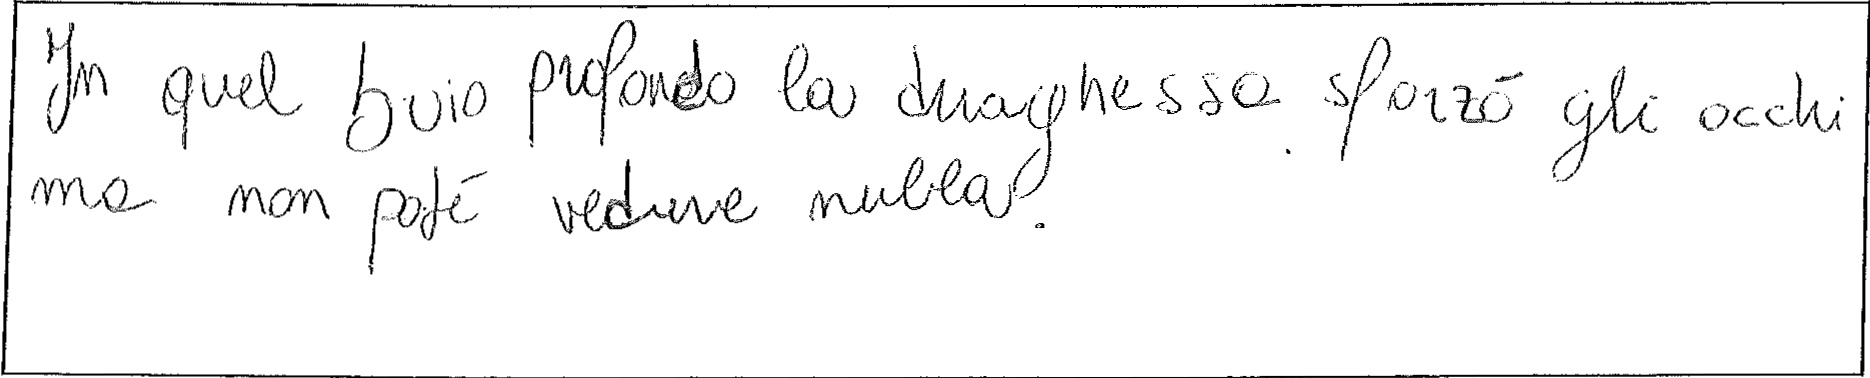 In quel buio profondo la draghessa sforzò gli occhi
ma non poté vedere nulla.